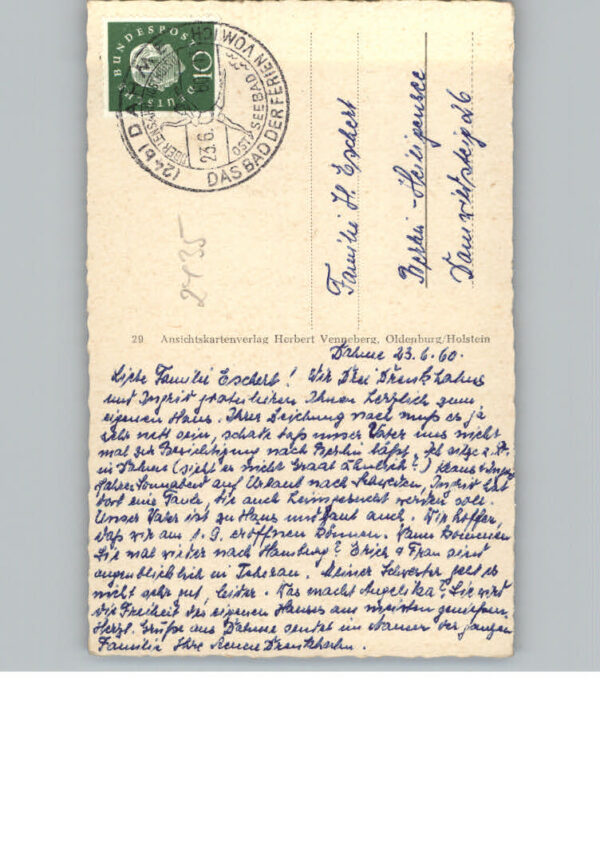 DEUTSCHE BUNDESPOST
10
(24b) DAHME
23.6.60
OSTSEEBAD
DAS BAD DER FERIEN
Familie H. Eschert
Berlin-Heiligensee
2135
29 Ansichtskartenverlag Herbert Venneberg, Oldenburg/Holstein
Dahme 23.6.60.
Liebe Familie Eschert! Wir Drei Drenkhahns
und Ingrid gratulieren Ihnen herzlich zum
eigenen Haus. Ihrer Zeichnung nach muß es ja
sehr nett sein, schade daß unser Vater uns nicht
mal zur Besichtigung nach Berlin läßt. Ich sitze z.Zt.
in Dahme (sieht es nicht ähnlich?) Klaus
fahren Sonnabend auf Urlaub nach Schweden, Ingrid hat
dort eine Tante, die auch heimgesucht werden soll.
Unser Vater ist zu Haus und baut auch. Wir hoffen,
daß wir am 1.9. eröffnen können. Wann kommen
Sie mal wieder nach Hamburg? Erich & Frau sind
augenblicklich in Teheran. Meiner Schwester geht es
nicht sehr gut, leider. Was macht Angelika? Sie wird
die Freiheit des eigenen Hauses am meisten genießen.
Herzl. Grüße aus Dahme sendet im Namen der ganzen
Familie Ihre Drenkhahn.